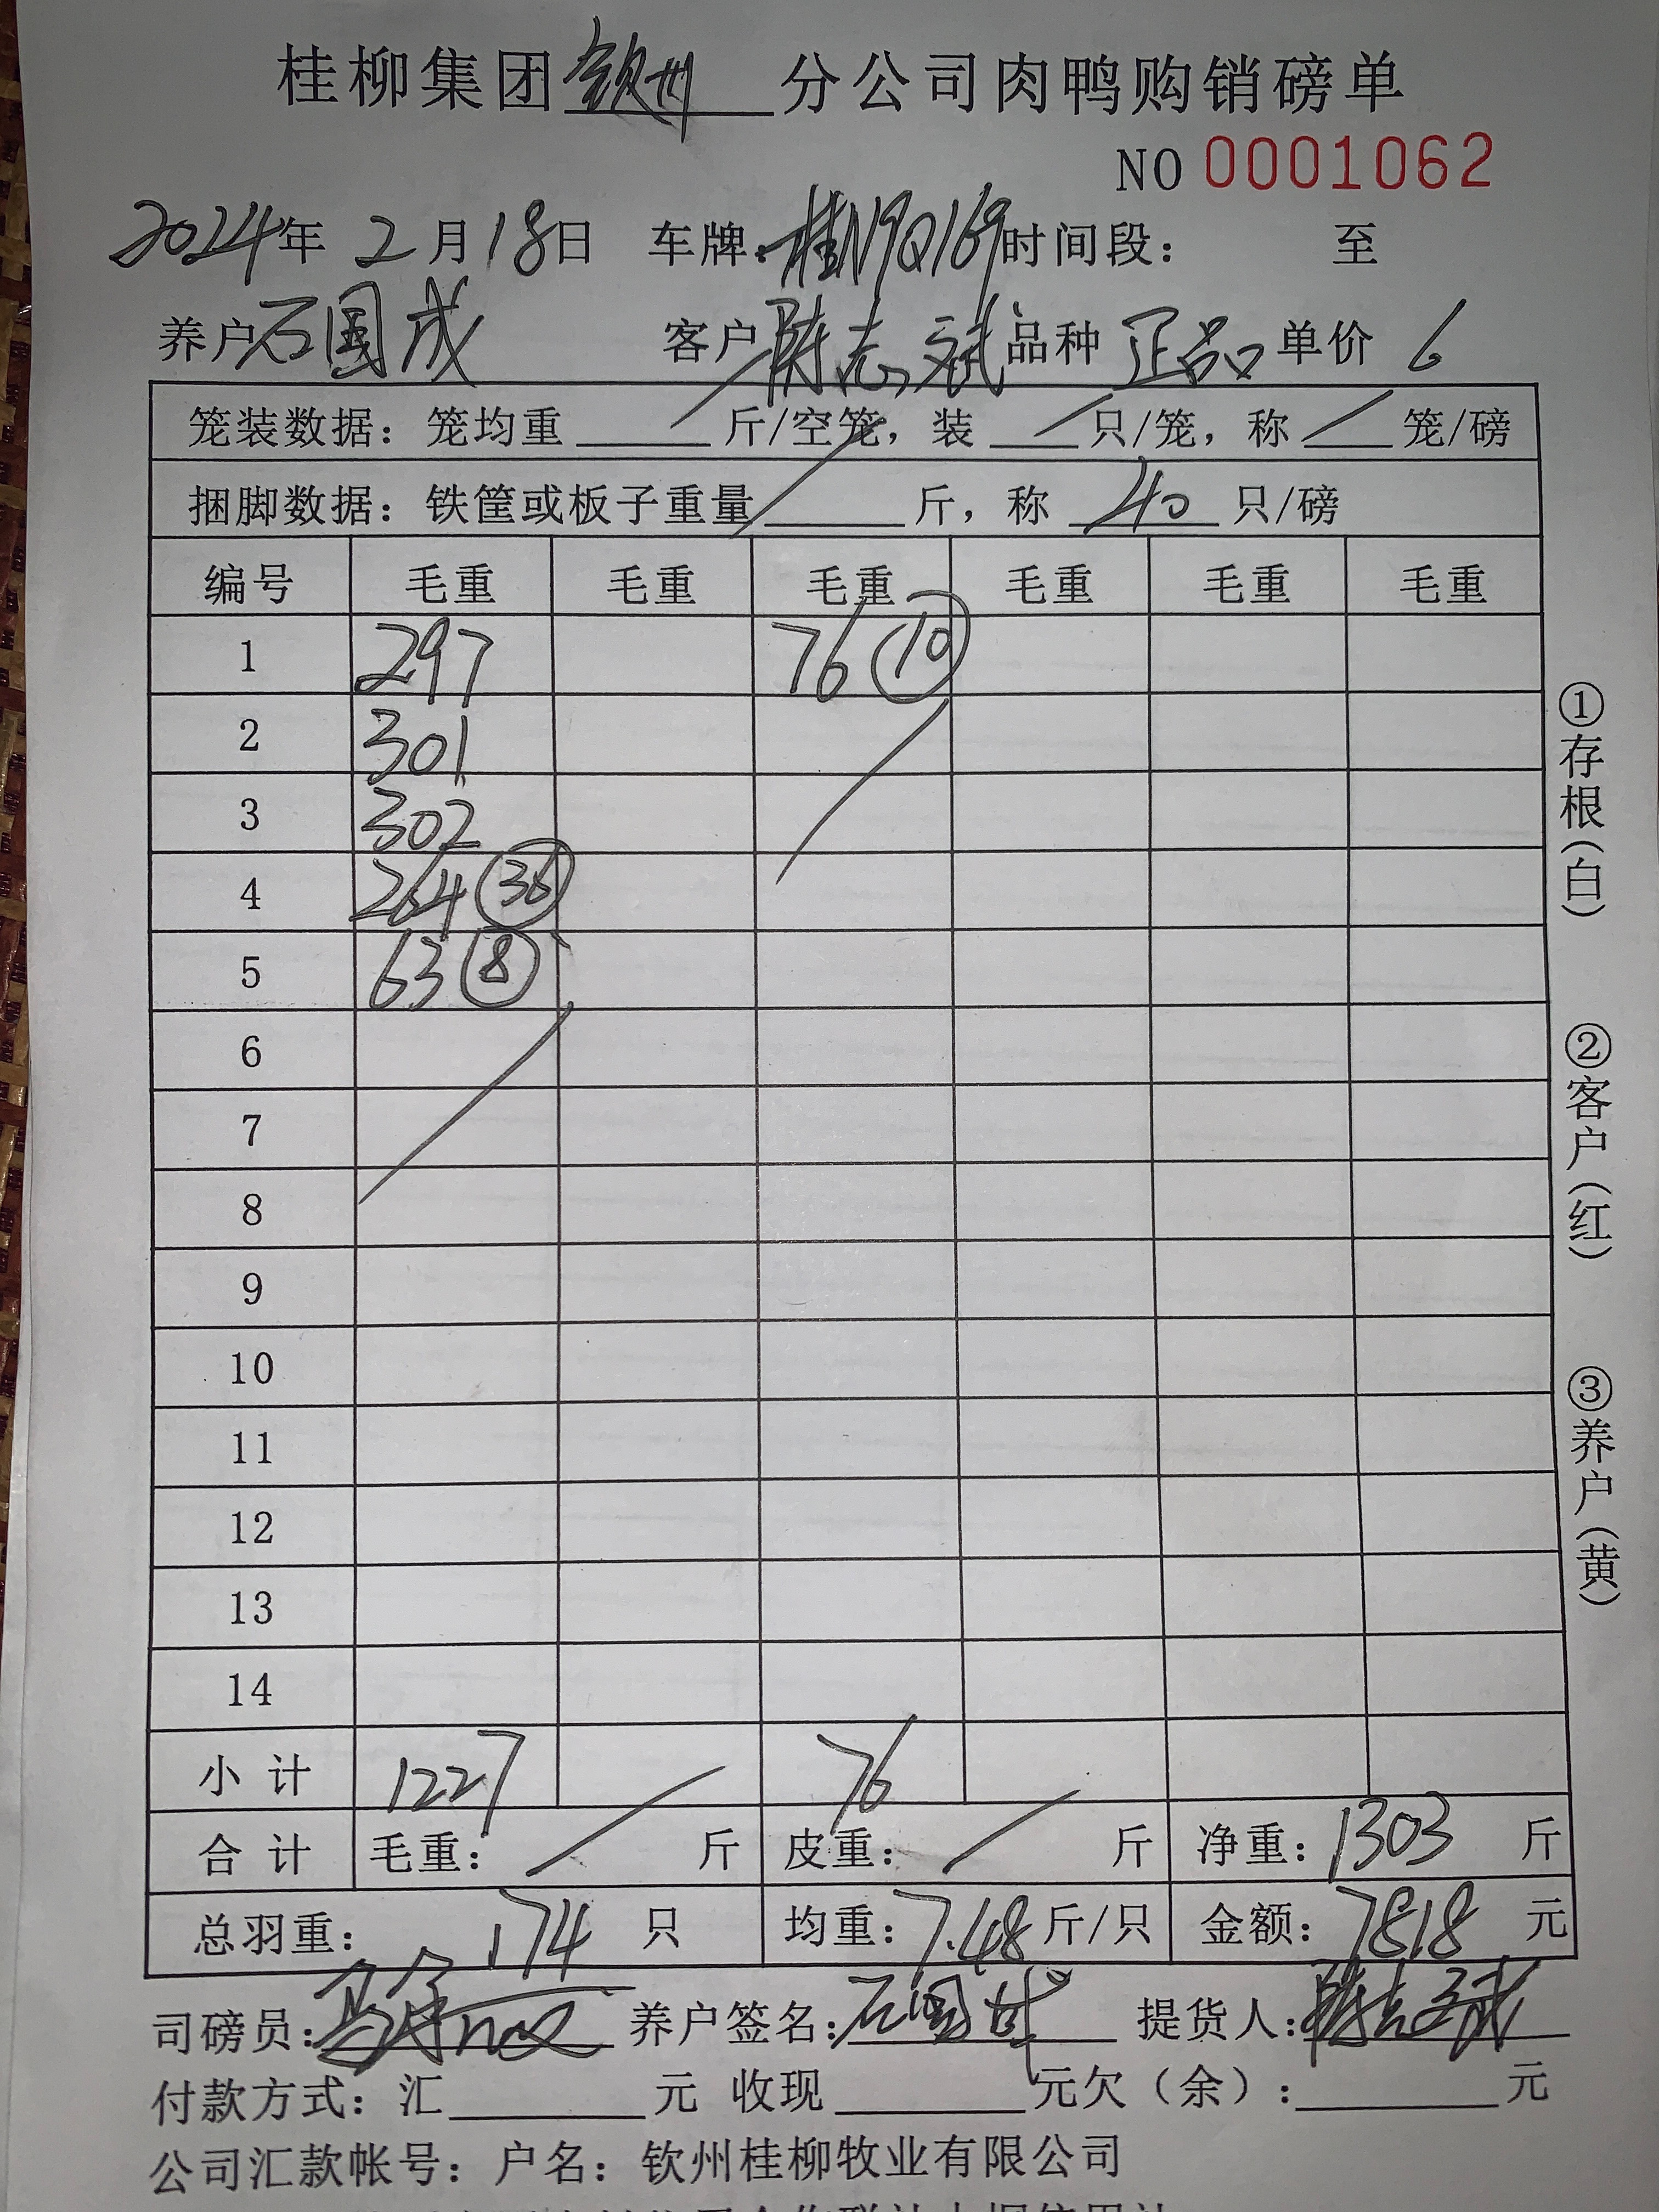 桂柳集团钦州分公司肉鸭购销磅单
NO 0001062
2024年 2月18日 车牌:桂N9Q169时间段: 至
养户石国成 客户陈志斌品种 正品 单价 6
笼装数据: 笼均重 / 斤/空笼, 装 / 只/笼, 称 / 笼/磅
捆脚数据: 铁筐或板子重量 / 斤, 称 40 只/磅
编号 毛重 毛重 毛重 毛重 毛重 毛重
1 297 76 ⑩
2 301
3 302
4 264 ㊱
5 63 ⑧
6
7
8
9
10
11
12
13
14
小 计 1227 76
合 计 毛重: / 斤 皮重: / 斤 净重: 1303 斤
总羽重: 174 只 均重: 7.48 斤/只 金额: 7818 元
司磅员: 养户签名: 石国成 提货人: 陈志斌
付款方式: 汇 元 收现 元欠(余): 元
公司汇款帐号: 户名: 钦州桂柳牧业有限公司
①存根(白)
②客户(红)
③养户(黄)